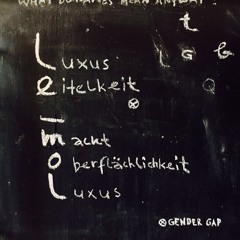 WHAT DO NAMES MEAN ANYWAY
t
L G B
Q
Luxus
eitelkeit
⊗
i
macht
oberflächlichkeit
Luxus
⊗ GENDER GAP